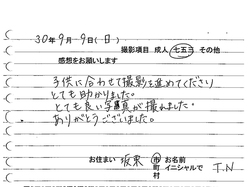 30年9月9日(日)
撮影項目 成人 七五三 その他
感想をお願いします
子供に合わせて撮影を進めてくださり
とても助かりました。
とても良い写真が撮れました。
ありがとうございました。
お住まい 坂東 市町村 お名前イニシャルで T.N